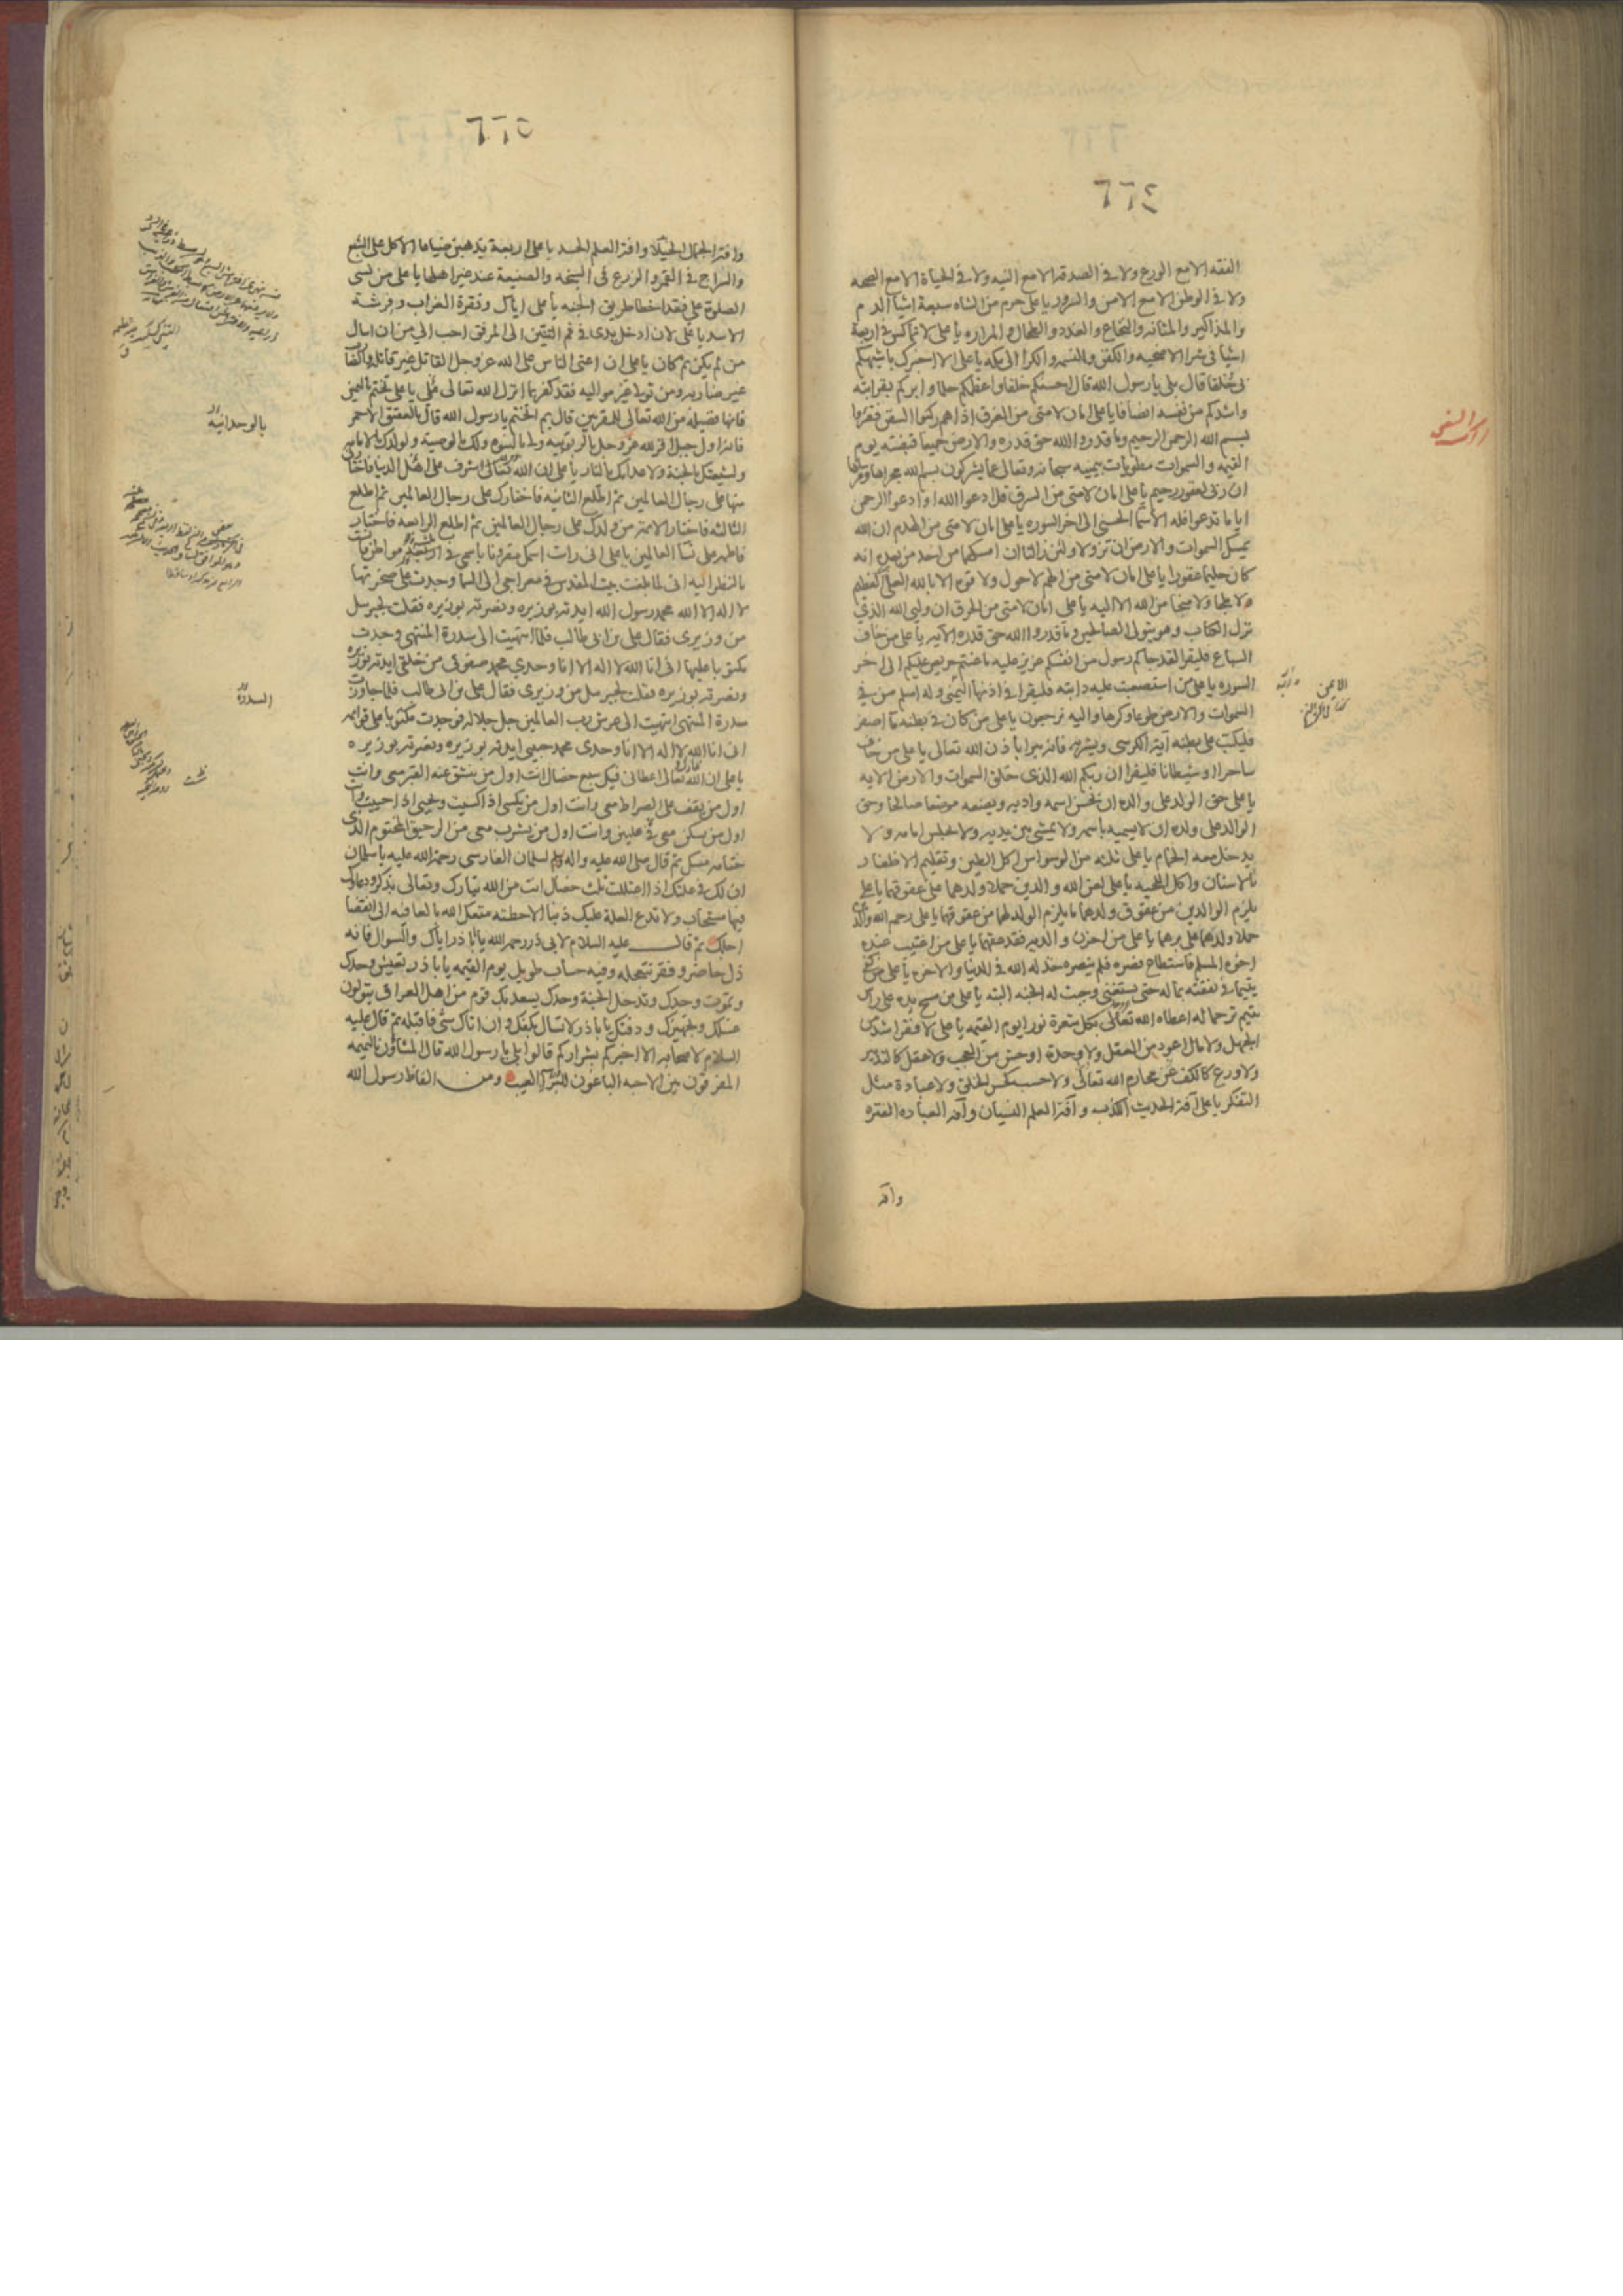 ٦٦٤
الفقه الا مع الورع ولا في الصدقه الا مع النيه ولا في الحياة الا مع الصحه
ولا في الوطن الا مع الامن والسرور يا على حرم من الشاه سبعة اشيا الدم
والمذاكير والمثانه والنخاع والغدد والطحال والمراره يا على لا تماكس في اربعة
اشيا في شرا الاضحيه والكفن والنسمه والكرا الى مكه يا على الا اخبرك باشبهكم
بى خُلقا قال بلى يا رسول الله قال احسنكم خلقا واعظمكم حلما وابركم بقرابته
واشدكم من نفسه انصافا يا على امان لامتى من الغرق اذا هم ركبوا السفن فقرؤا
بسم الله الرحمن الرحيم وما قدروا الله حق قدره والارض جميعا قبضته يوم
القيمه والسموات مطويات بيمينه سبحانه وتعالى عما يشركون بسم الله مجراها ومرساها
ان ربى لغفور رحيم يا على امان لامتى من السرق قل ادعوا الله او ادعوا الرحمن
ايا ما تدعوا فله الاسما الحسنى الى اخر السوره يا على امان لامتى من الهدم ان الله
يمسك السموات والارض ان تزولا ولئن زالتا ان امسكهما من احد من بعده انه
كان حليما غفورا يا على امان لامتى من الهم لا حول ولا قوه الا بالله العلى العظيم
ولا ملجا ولا منجا من الله الا اليه يا على امان لامتى من الحرق ان وليى الله الذي
نزل الكتاب وهو يتولى الصالحين وما قدروا الله حق قدره الآيه يا على من خاف
السباع فليقرا لقد جاكم رسول من انفسكم عزيز عليه ما عنتم حريص عليكم الى اخر
السوره يا على من استصعبت عليه دابته فليقرا في اذنها اليمنى وله اسلم من في
السموات والارض طوعا وكرها واليه ترجعون يا على من كان في بطنه ما اصفر
فليكتب على بطنه آية الكرسى ويشربه فانه يبرا باذن الله تعالى يا على من خاف
ساحرا او شيطانا فليقرا ان ربكم الله الذى خلق السموات والارض الايه
يا على حق الولد على والده ان يحسن اسمه وادبه ويضعه موضعا صالحا وحق
الوالد على ولده ان لا يسميه باسمه ولا يمشى بين يديه ولا يجلس امامه ولا
يدخل معه الحمام يا على ثلثه من الوسواس اكل الطين وتقليم الاظفار
بالاسنان واكل اللحيه يا على لعن الله والدين حملا ولدهما على عقوقهما يا على
يلزم الوالدين من عقوق ولدهما ما يلزم الولد لهما من عقوقهما يا على رحم الله والدين
حملا ولدهما على برهما يا على من احزن والديه فقد عقهما يا على من اغتيب عنده
اخوه المسلم فاستطاع نصره فلم ينصره خذله الله في الدنيا والاخره يا على من كفى
يتيما في نفقته بماله حتى يستغنى وجبت له الجنه البته يا على من مسح يده على راس
يتيم ترحما له اعطاه الله تعالى بكل شعرة نورا يوم القيمه يا على لا فقر اشد من
الجهل ولا مال اعود من العقل ولا وحدة اوحش من العجب ولا عقل كالتدبير
ولا ورع كالكف عن محارم الله تعالى ولا حسب كحسن الخلق ولا عبادة مثل
التفكر يا على آفة الحديث الكذب وآفة العلم النسيان وآفه العباده الفتره
وآفه
٦٦٥
وافة الجمال الخيلا وافة العلم الحسد يا على اربعة يذهبن ضياعا الاكل على الشبع
والسراج في القمر والزرع في السبخه والصنيعة عند غير اهلها يا على من نسى
الصلوة علي فقد اخطا طريق الجنه يا على اياك ونقرة الغراب وفرشة
الاسد يا على لان ادخل يدى في فم التنين الى المرفق احب الي من ان اسال
من لم يكن ثم كان يا على ان اعتى الناس على الله عز وجل القاتل غير قاتله والضارب
غير ضاربه ومن تولى غير مواليه فقد كفر بما انزل الله تعالى علي يا على تختم باليمين
فانها فضيله من الله تعالى للمقربين قال بم اتختم يا رسول الله قال بالعقيق الاحمر
فانه اول جبل اقر لله عز وجل بالربوبيه ولى بالنبوه ولك بالوصية ولولدك بالامامه
ولشيعتك بالجنة ولاعدائك بالنار يا على ان الله تعالى اشرف على اهل الدنيا فاختارنى
منها على رجال العالمين ثم اطلع الثانيه فاختارك على رجال العالمين ثم اطلع
الثالثه فاختار الائمه من ولدك على رجال العالمين ثم اطلع الرابعه فاختار
فاطمه على نسا العالمين يا على انى رايت اسمك مقرونا باسمى في مواطن فانست
بالنظر اليه انى لما بلغت بيت المقدس في معراجى الى السما وجدت على صخرتها
لا اله الا الله محمد رسول الله ايدته بوزيره ونصرته بوزيره فقلت لجبرئيل
من وزيرى فقال على بن ابى طالب فلما انتهيت الى سدرة المنتهى وجدت
مكتوبا عليها انى انا الله لا اله الا انا وحدى محمد صفوتى من خلقى ايدته بوزيره
ونصرته بوزيره فقلت لجبرئيل من وزيرى فقال على بن ابى طالب فلما جاوزت
سدرة المنتهى انتهيت الى عرش رب العالمين جل جلاله فوجدت مكتوبا على قوائمه
انى انا الله لا اله الا انا وحدى محمد حبيبى ايدته بوزيره ونصرته بوزيره
يا على ان الله تبارك وتعالى اعطانى فيك سبع خصال انت اول من ينشق عنه القبر معى وانت
اول من يقف على الصراط معى وانت اول من يكسى اذا كسيت ويحيى اذا حييت وانت
اول من يسكن معى في عليين وانت اول من يشرب معى من الرحيق المختوم الذى
ختامه مسك ثم قال صلى الله عليه واله وسلم لسلمان الفارسى رحمة الله عليه يا سلمان
ان لك في علتك اذا اعتللت ثلث خصال انت من الله تبارك وتعالى بذكر ودعاؤك
فيها مستجاب ولا تدع العلة عليك ذنبا الا حطته متعك الله بالعافيه الى انقضا
اجلك ثم قال عليه السلام لابى ذر رحمه الله يا ابا ذر اياك والسوال فانه
ذل حاضر وفقر تتعجله وفيه حساب طويل يوم القيمه يا با ذر تعيش وحدك
وتموت وحدك وتدخل الجنة وحدك يسعد بك قوم من اهل العراق يتولون
غسلك وتجهيزك ودفنك يا با ذر لا تسال بكفك وان اتاك شى فاقبله ثم قال عليه
السلام لاصحابه الا اخبركم بشراركم قالوا بلى يا رسول الله قال المشاؤن بالنميمه
المفرقون بين الاحبه الباغون للبرآ العيب ومن الفاظ رسول الله
بالوحدانية
السدرة